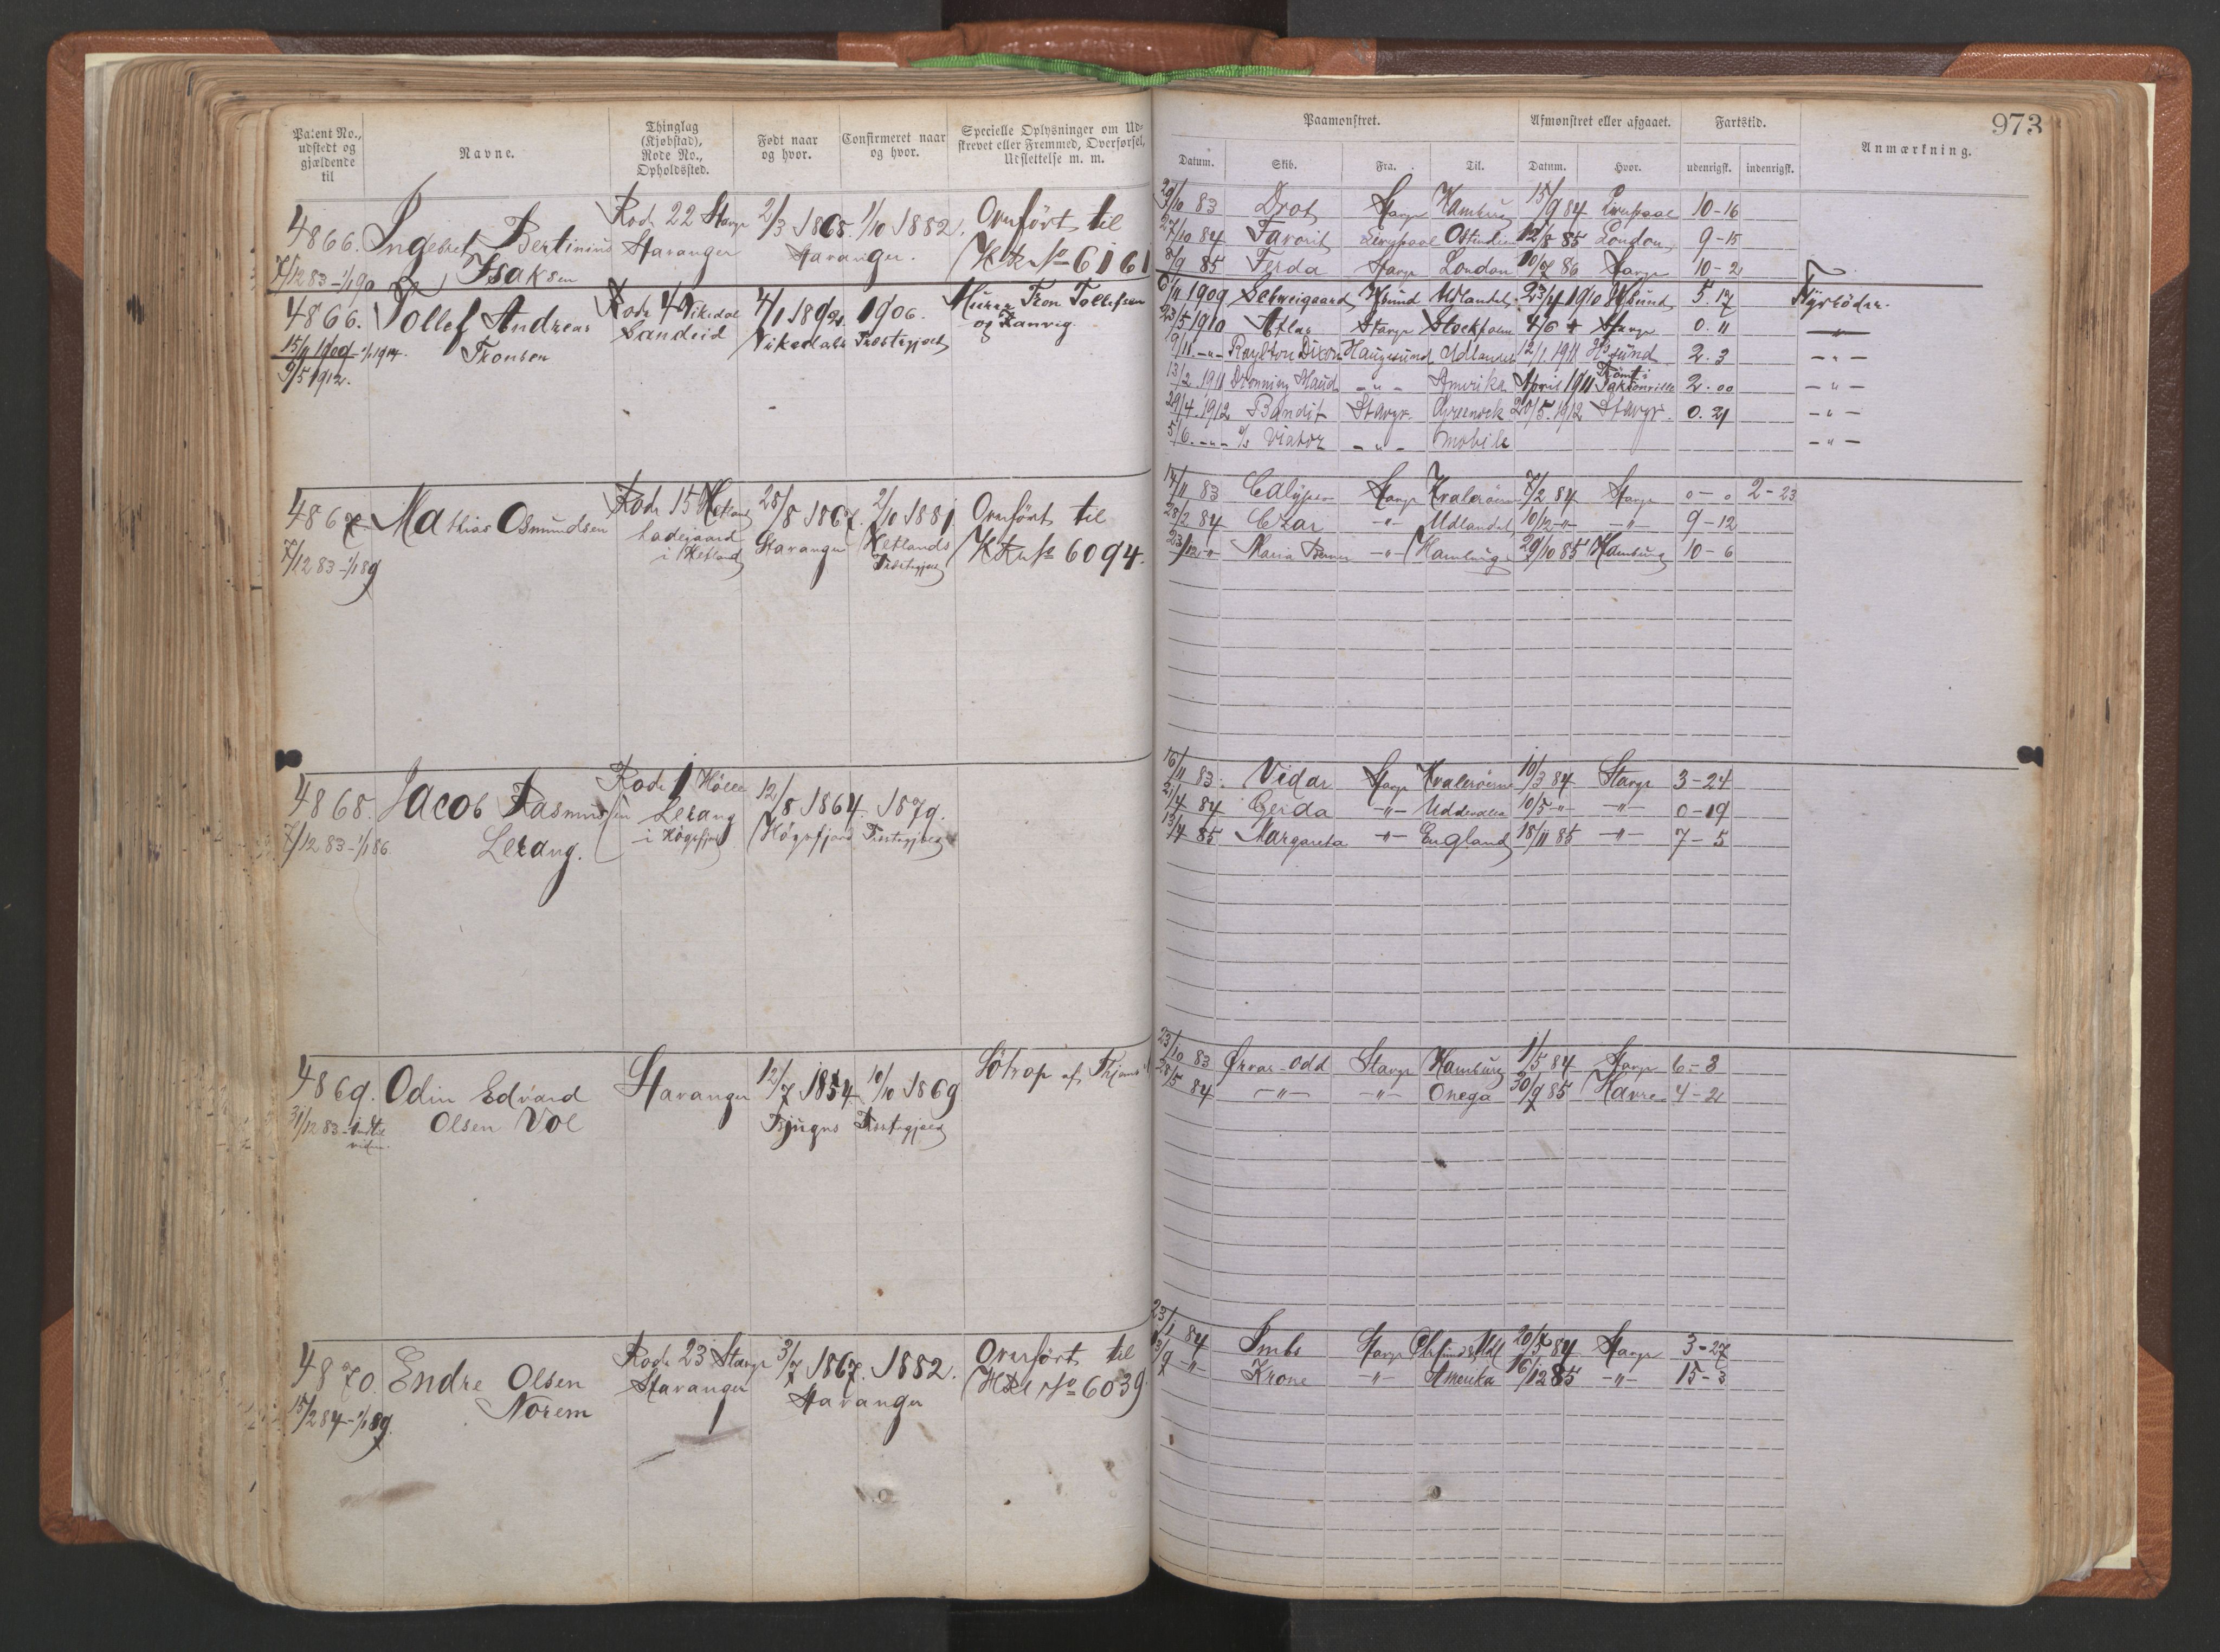 973
Patent No., udstedt og gjældende til
Navne.
Thinglag (Kjøbstad), Rode No., Opholdssted.
Født naar og hvor.
Confirmeret naar og hvor.
Specielle Oplysninger om Udskrevet eller Fremmed, Overførsel, Udslettelse m. m.
Paamønstret.
Afmønstret eller afgaaet.
Fartstid.
Anmærkning.
Datum. Skib. Fra. Til. Datum. Hvor. udenrigsk. indenrigsk.
4866. Ingebret Bertinius Rode 22 Stavgr 2/3 1865. 1/10 1882. Overført til
7/12 83 - 1/1 90 Isaksen Stavanger Stavanger. No 6161
29/10 83 Drot Stavgr Hamburg 15/9 84 Liverpool 10-16
27/10 84 Favorit Liverpool Ostindien 12/8 85 London 9-15
8/9 85 Ferda Stavgr London 10/7 86 Stavgr 10-2
4866. Tollef Andreas Rode 4 Vikedal 4/1 1892. 1906. Murer Tron Tollefsen
15/11 1909 - 1/1 1914. Tronsen Sandeid Vikedals Præstegjeld og
9/5 1912.
6/11 1909 Schweigaard Hsund Udlandet 23/4 1910 Hsund 5.17 Fyrbøder.
23/5 1910 Atlas Stavgr Stockholm 4/6 Stavgr 0.11 — " —
19/11 -"- Roylston Dixon Haugesund Udlandet 12/1 1911 Hsund 2.3 — " —
13/2 1911 Dronning Maud -"- Amerika April 1911 Rømt i Jaksonville 2.00 — " —
29/4 1912 Bandit Stavgr. Greenock 20/5 1912 Stavgr. 0.21 — " —
5/6 -"- Viator -"- Mobile — " —
4867 Mathias Osmundsen Rode 15 Hetland 28/8 1867. 2/10 1881. Overført til
7/12 83 - 1/1 89 Ladegaard i Hetland Stavanger Hetlands Præstegjeld No 6094.
14/11 83 Calypso Stavgr 7/2 84 Stavgr 0-0 2-23
28/2 84 Czar -"- Udlandet 10/12 -"- -"- 9-12
23/12 -"- Maria -"- Hamburg 29/10 85 Hamburg 10-6
4868. Jacob Rasmussen Rode 1 Høle 12/8 1864. 1879.
7/12 83 - 1/1 86. Lerang. Lerang i Høgsfjord Høgsfjord Præstegjeld
16/11 83. Vidar Stavgr 10/3 84 Stavgr 3-24
21/4 84 Gerda -"- Uddevalla 10/5 -"- -"- 0-19
13/4 85 Margareta -"- England 18/11 85 -"- 7-5
4869. Odin Edvard Stavanger 12/7 1854 10/10 1869
31/12 83 - indtil videre Olsen Vol Præstegjeld
23/10 83 Ørvar-Odd Stavgr Hamburg 1/5 84 Stavgr 6-8
28/5 84 -"- -"- Onega 30/9 85 Havre 4-2
4870. Endre Olsen Rode 23 Stavgr 3/7 1867. 1882. Overført til
15/2 84 - 1/1 89. Norem Stavanger Stavanger No 6039
23/1 84 Imbs Stavgr 20/5 84 Stavgr 3-27
13/9 -"- Krone -"- Amerika 16/12 85 -"- 15-3